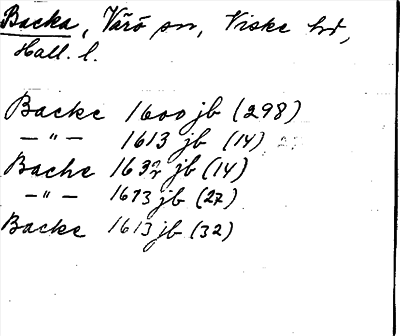 Backa, Värö sn, Viske hd,
Hall. l.
Backe 1600 jb (298)
— " — 1613 jb (14)
Backe 163 jb (14)
— " — 1673 jb (27)
Backe 1613 jb (32)